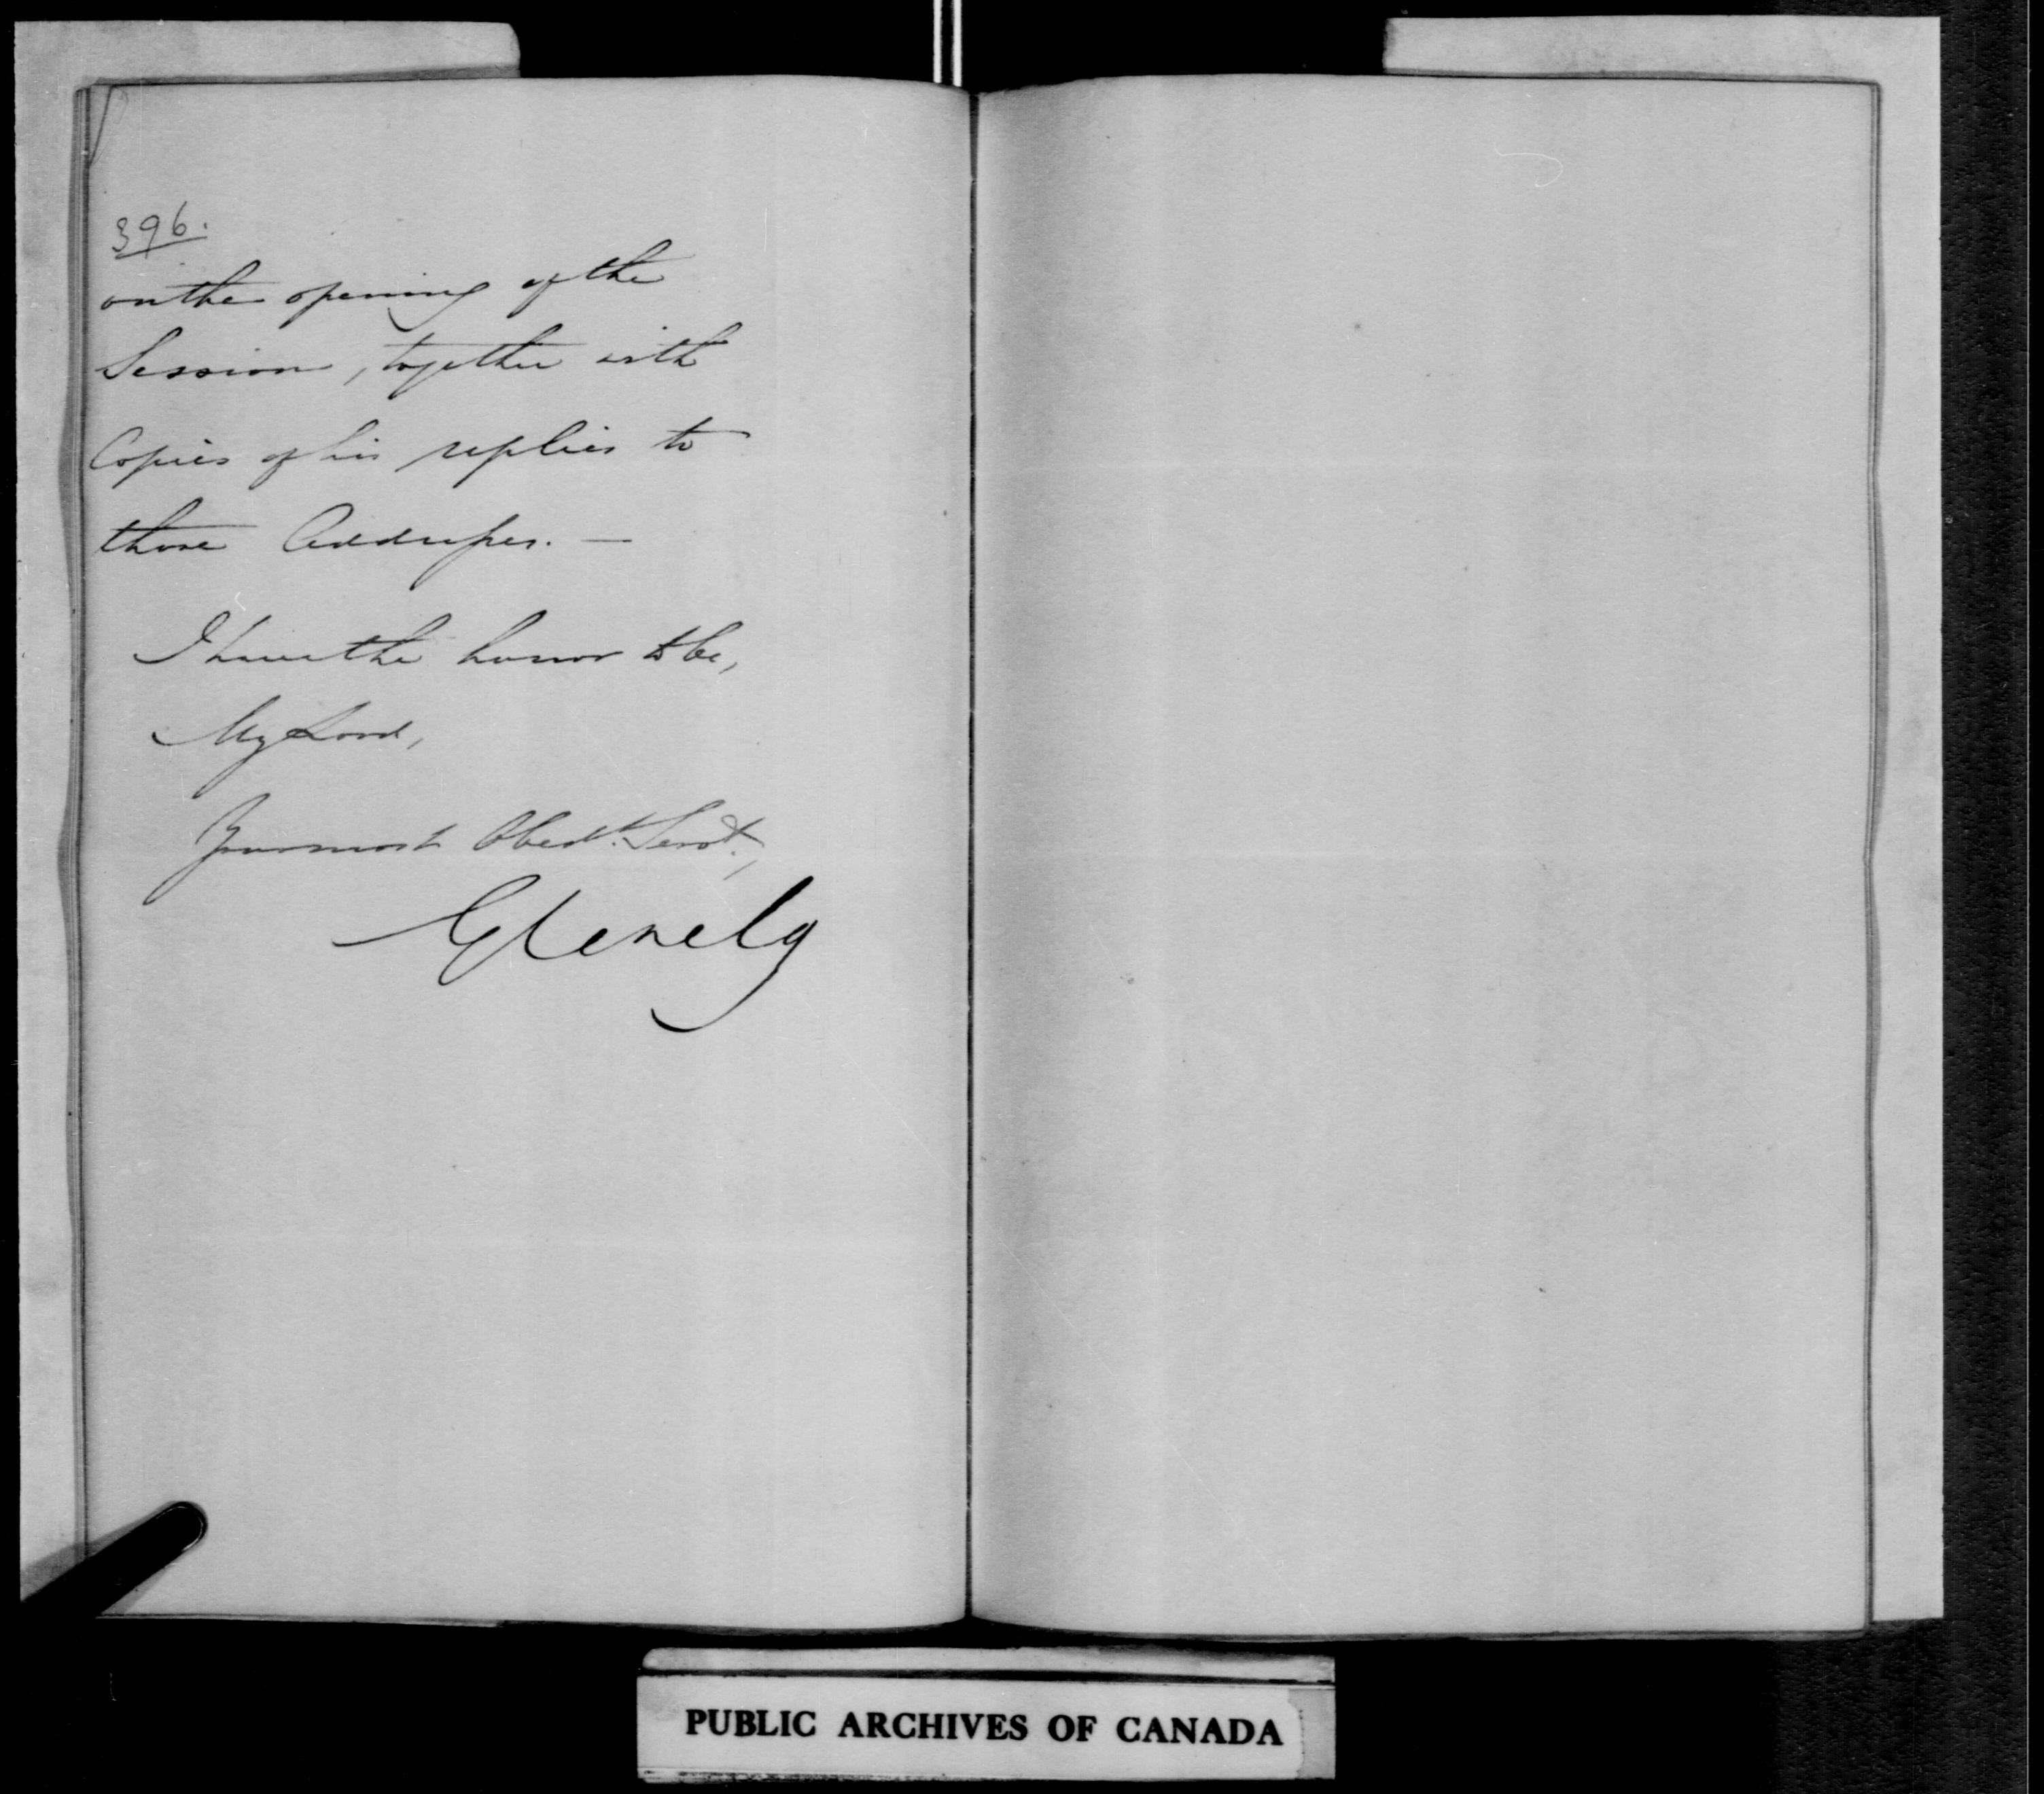 396.
on the opening of the
Session, together with
Copies of his replies to
those Addresses. —
I have the honor to be,
My Lord,
Your most Obedt. Servt.,
Glenelg
PUBLIC ARCHIVES OF CANADA